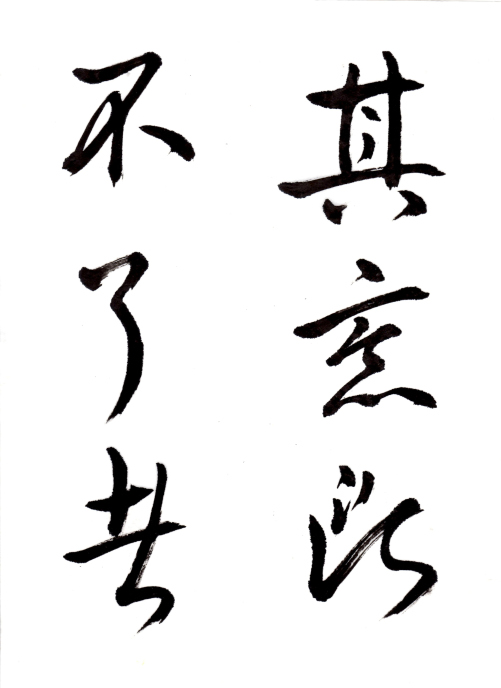 其意断
不了者